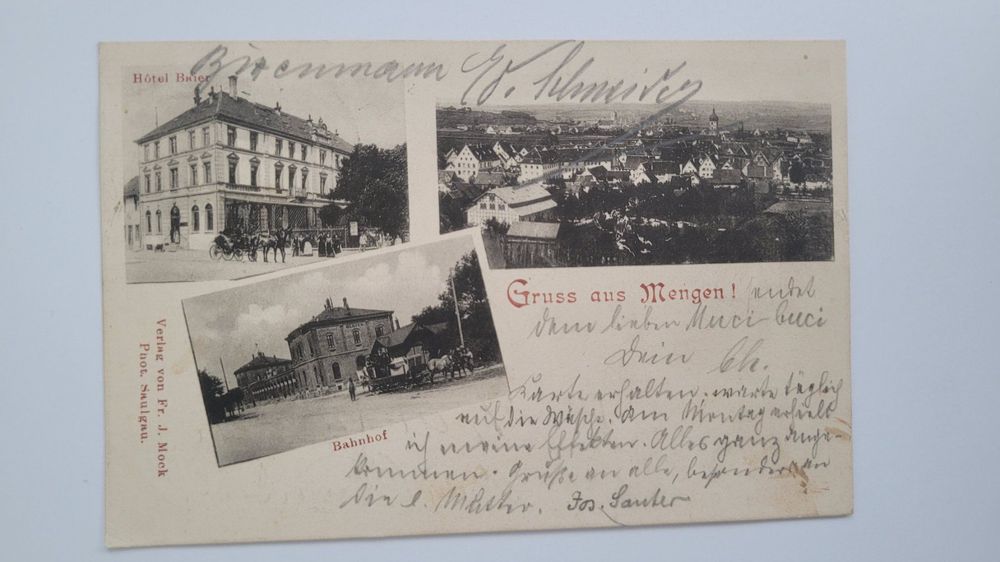 Hôtel Baier
Birenmann Ed. Schneider
Gruss aus Mengen! sendet
dem lieben Muci buci
Dein Ch.
Karte erhalten, warte täglich
auf die Wäsche. Am Montag erhielt
ich meine Effekten. Alles ganz ange-
kommen. Grüße an alle, besonders an
die l. Mutter. Jos. Sauter
Bahnhof
Verlag von Fr. J. Mock
Phot. Saulgau.